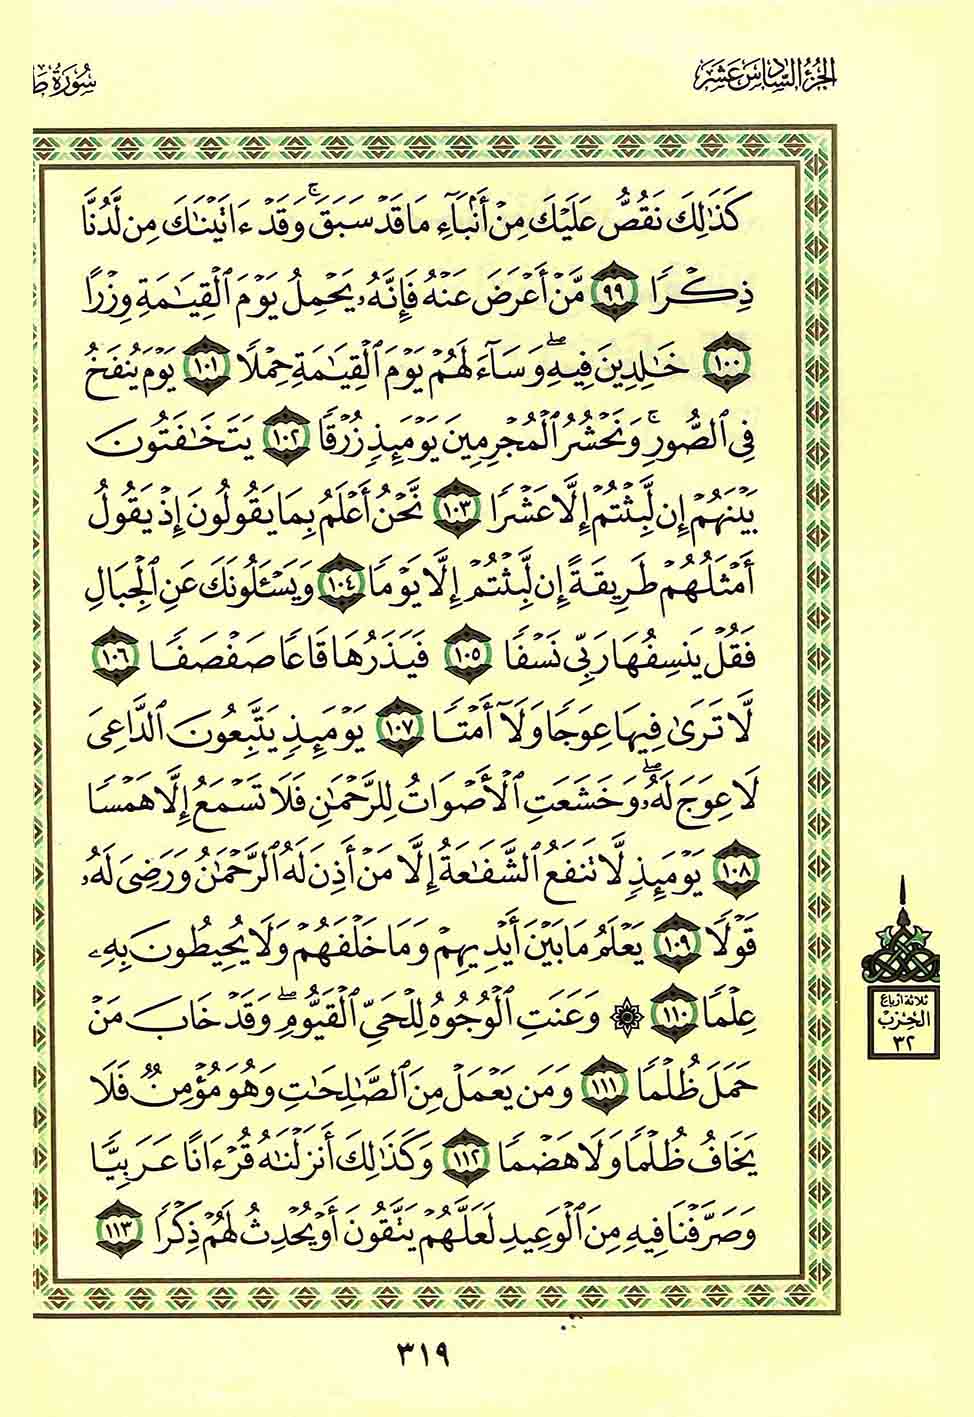 الجزء السادس عشر
سورة ط
كَذَٰلِكَ نَقُصُّ عَلَيْكَ مِنْ أَنۢبَآءِ مَا قَدْ سَبَقَ ۚ وَقَدْ ءَاتَيْنَٰكَ مِن لَّدُنَّا
ذِكْرًا ٩٩ مَّنْ أَعْرَضَ عَنْهُ فَإِنَّهُۥ يَحْمِلُ يَوْمَ ٱلْقِيَٰمَةِ وِزْرًا
١٠٠ خَٰلِدِينَ فِيهِ ۖ وَسَآءَ لَهُمْ يَوْمَ ٱلْقِيَٰمَةِ حِمْلًا ١٠١ يَوْمَ يُنفَخُ
فِى ٱلصُّورِ ۚ وَنَحْشُرُ ٱلْمُجْرِمِينَ يَوْمَئِذٍ زُرْقًا ١٠٢ يَتَخَٰفَتُونَ
بَيْنَهُمْ إِن لَّبِثْتُمْ إِلَّا عَشْرًا ١٠٣ نَّحْنُ أَعْلَمُ بِمَا يَقُولُونَ إِذْ يَقُولُ
أَمْثَلُهُمْ طَرِيقَةً إِن لَّبِثْتُمْ إِلَّا يَوْمًا ١٠٤ وَيَسْـَٔلُونَكَ عَنِ ٱلْجِبَالِ
فَقُلْ يَنسِفُهَا رَبِّى نَسْفًا ١٠٥ فَيَذَرُهَا قَاعًا صَفْصَفًا ١٠٦
لَّا تَرَىٰ فِيهَا عِوَجًا وَلَآ أَمْتًا ١٠٧ يَوْمَئِذٍ يَتَّبِعُونَ ٱلدَّاعِىَ
لَا عِوَجَ لَهُۥ ۖ وَخَشَعَتِ ٱلْأَصْوَاتُ لِلرَّحْمَٰنِ فَلَا تَسْمَعُ إِلَّا هَمْسًا
١٠٨ يَوْمَئِذٍ لَّا تَنفَعُ ٱلشَّفَٰعَةُ إِلَّا مَنْ أَذِنَ لَهُ ٱلرَّحْمَٰنُ وَرَضِىَ لَهُۥ
قَوْلًا ١٠٩ يَعْلَمُ مَا بَيْنَ أَيْدِيهِمْ وَمَا خَلْفَهُمْ وَلَا يُحِيطُونَ بِهِۦ
عِلْمًا ١١٠ ۞ وَعَنَتِ ٱلْوُجُوهُ لِلْحَىِّ ٱلْقَيُّومِ ۖ وَقَدْ خَابَ مَنْ
حَمَلَ ظُلْمًا ١١١ وَمَن يَعْمَلْ مِنَ ٱلصَّٰلِحَٰتِ وَهُوَ مُؤْمِنٌ فَلَا
يَخَافُ ظُلْمًا وَلَا هَضْمًا ١١٢ وَكَذَٰلِكَ أَنزَلْنَٰهُ قُرْءَانًا عَرَبِيًّا
وَصَرَّفْنَا فِيهِ مِنَ ٱلْوَعِيدِ لَعَلَّهُمْ يَتَّقُونَ أَوْ يُحْدِثُ لَهُمْ ذِكْرًا ١١٣
ثلاثة ارباع
الحزب
٣٢
٣١٩